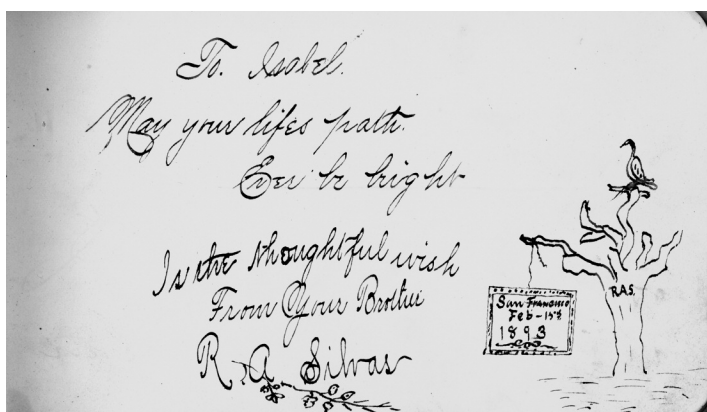 To. Isabel.
May your lifes path.
Ever be bright
Is the thoughtful wish
From Your Brother
R. A Silvas
R.A.S.
San Francisco
Feb - 15th
1893